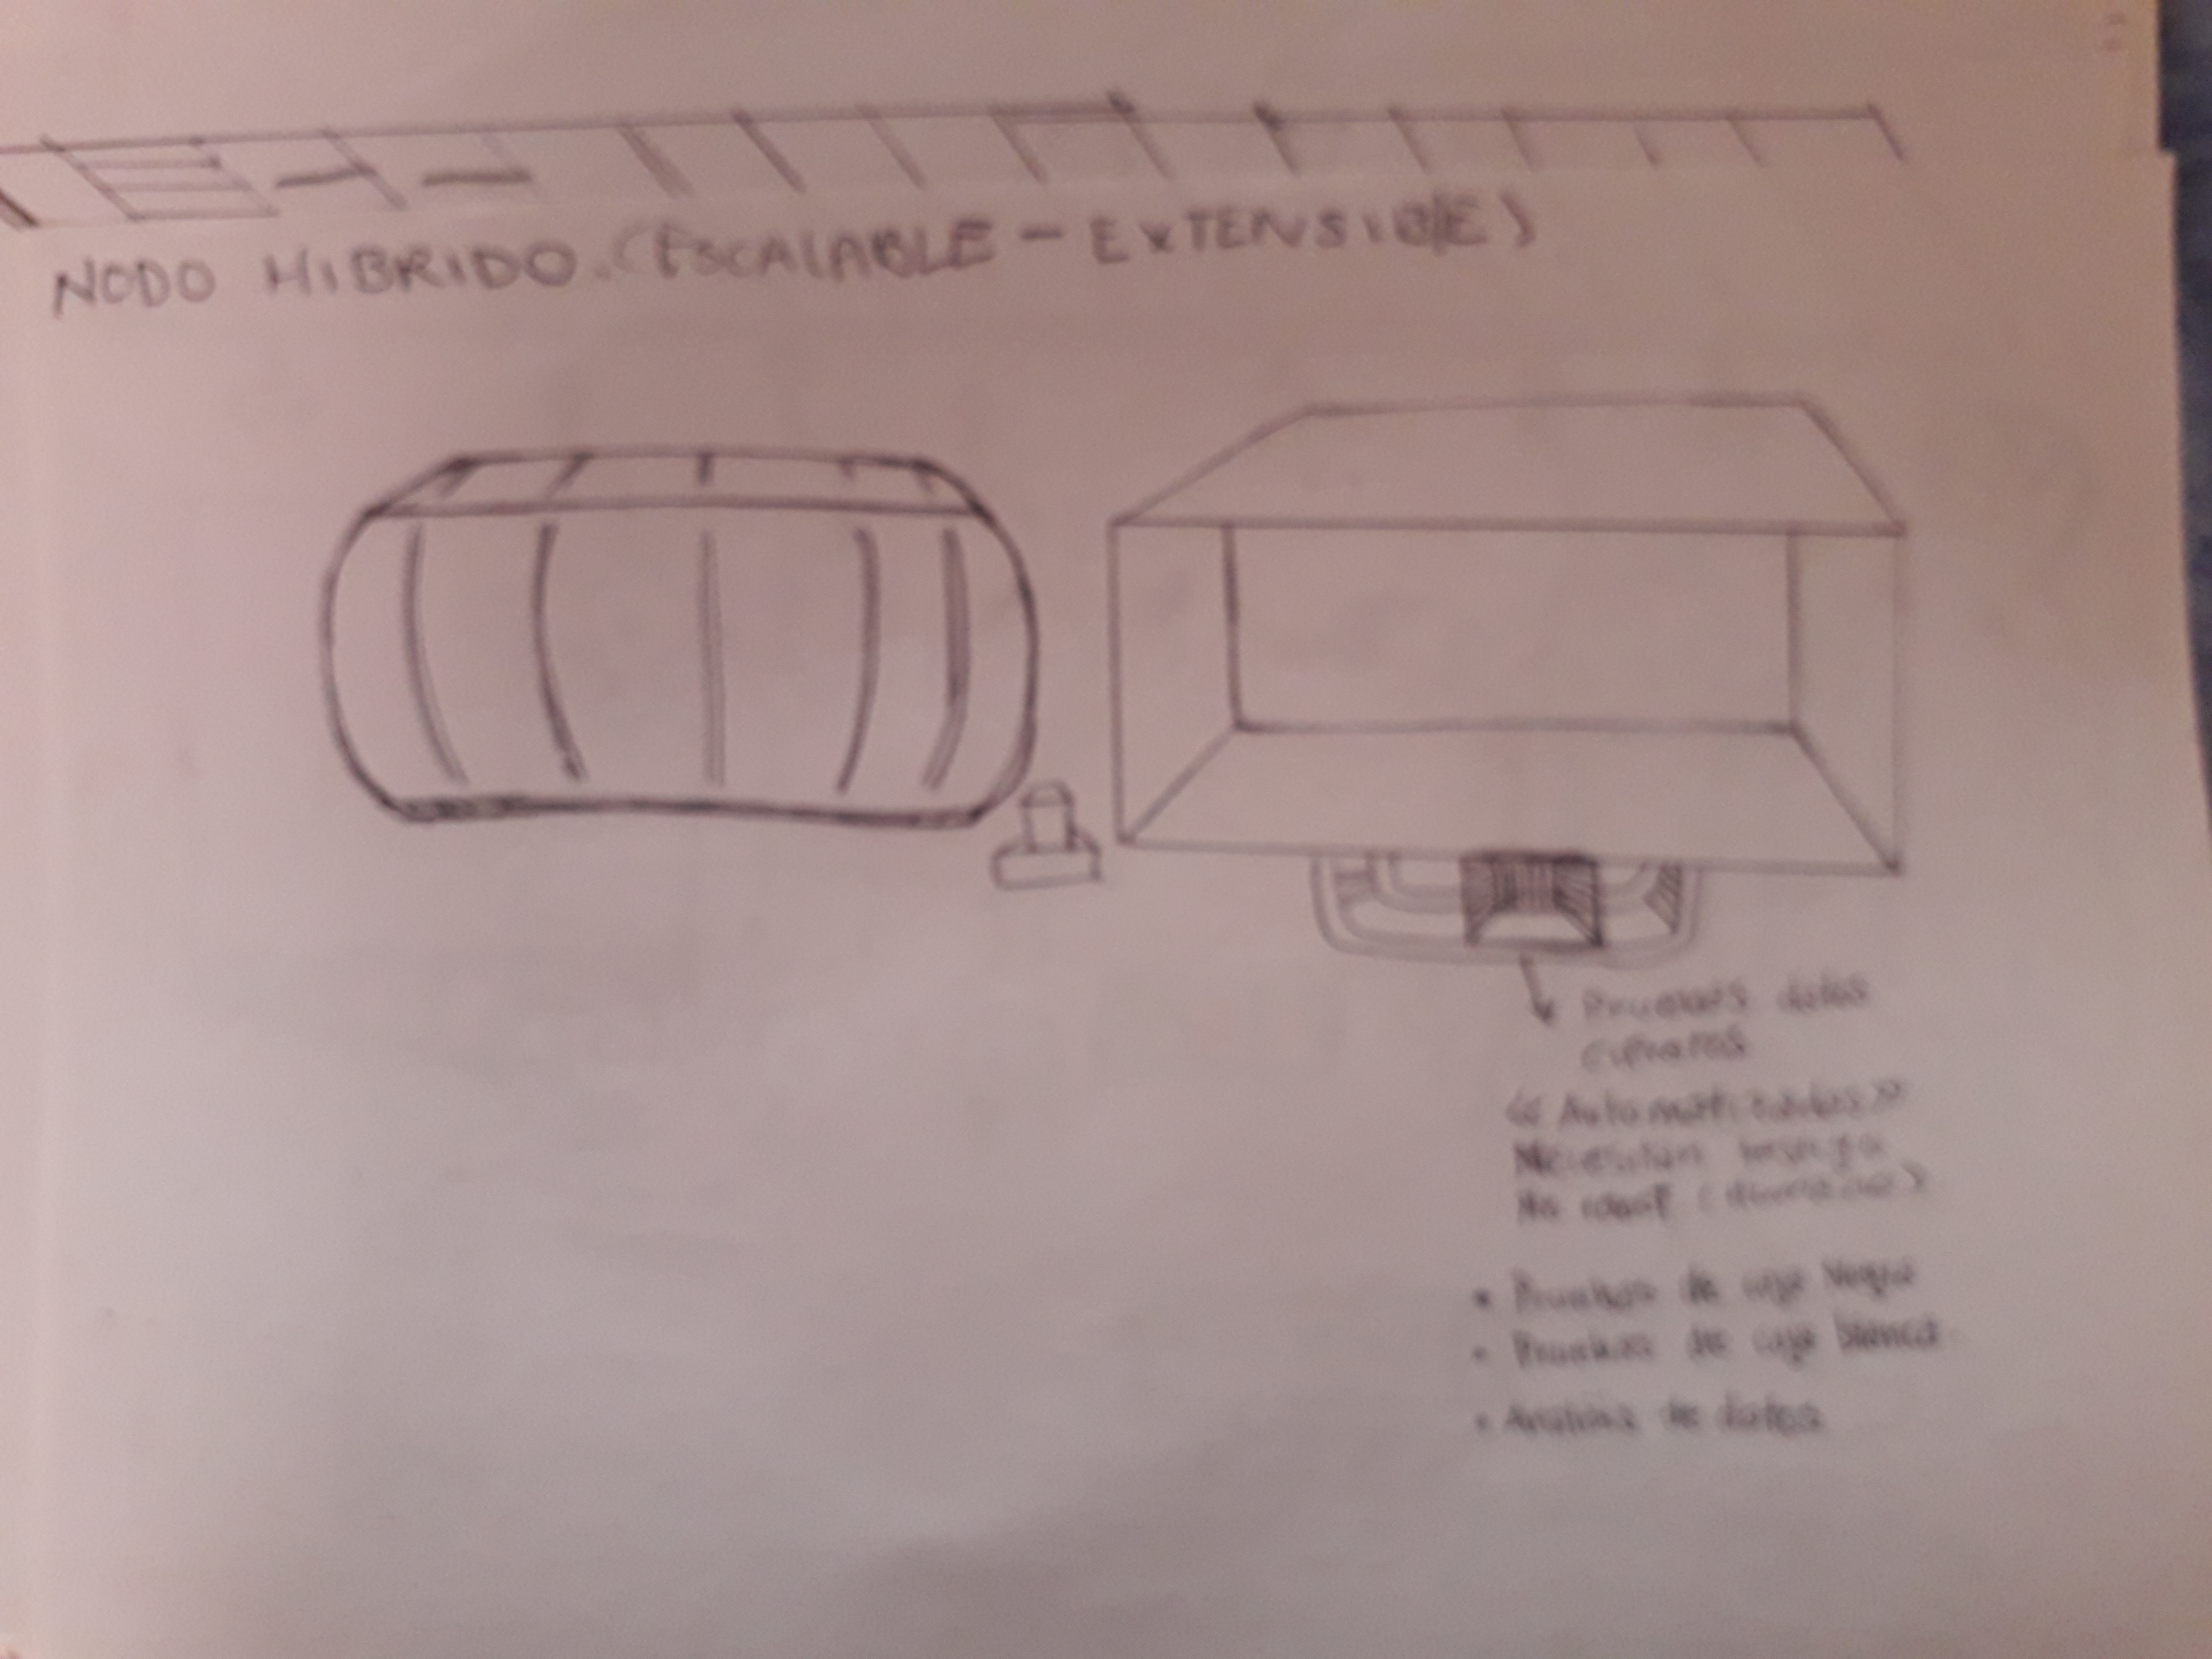 NODO HIBRIDO. (ESCALABLE - EXTENSIBLE)
Pruebas datos
<< Automatizadas >>
Necesitan
No
• Pruebas de caja Negra
• Pruebas de caja blanca
• Analisis de datos